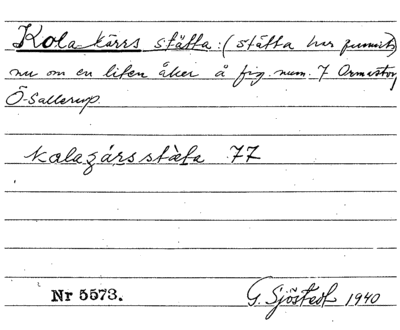 Kolakärrs stätta: (stätta har funnits)
nu om en liten åker å fig. num. 7 Ormastorp
Ö-Sallerup.
kolagársstàta 77
Nr 5573. G. Sjöstedt 1940